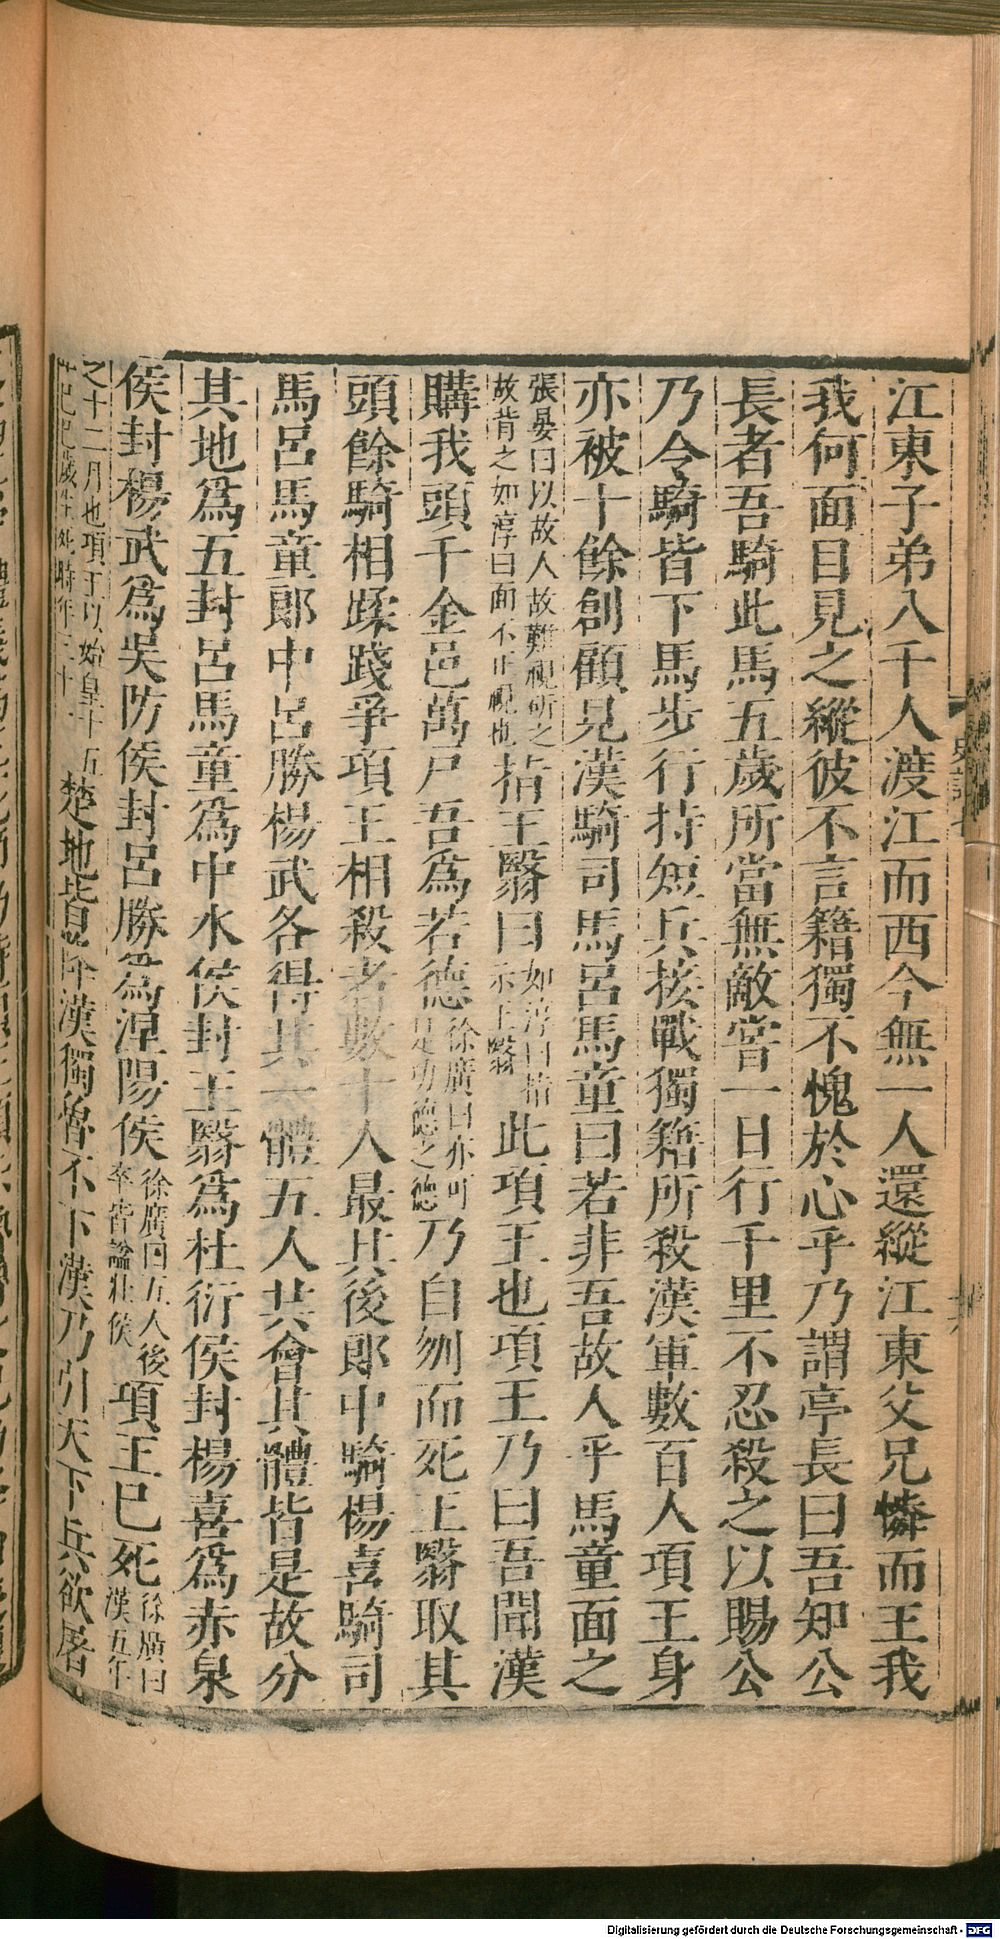 江東子弟八千人渡江而西今無一人還縱江東父兄憐而王我
我何面目見之縱彼不言籍獨不愧於心乎乃謂亭長曰吾知公
長者吾騎此馬五歲所當無敵甞一日行千里不忍殺之以賜公
乃令騎皆下馬步行持短兵接戰獨籍所殺漢軍數百人項王身
亦被十餘創顧見漢騎司馬呂馬童曰若非吾故人乎馬童面之
張晏曰以故人故難視斫之
故背之如淳曰面不正視也
指王翳曰
如淳曰指
示王翳
此項王也項王乃曰吾聞漢
購我頭千金邑萬戶吾爲若德
徐廣曰亦可
是功德之德
乃自刎而死王翳取其
頭餘騎相蹂踐爭項王相殺者數十人最其後郎中騎楊喜騎司
馬呂馬童郎中呂勝楊武各得其一體五人共會其體皆是故分
其地爲五封呂馬童爲中水侯封王翳爲杜衍侯封楊喜爲赤泉
侯封楊武爲吳防侯封呂勝爲涅陽侯
徐廣曰五人後
卒皆謚壯侯
項王已死
徐廣曰
漢五年
之十二月也項王以始皇十五
年己巳歲生死時年三十一
楚地皆降漢獨魯不下漢乃引天下兵欲屠
史記七
Digitalisierung gefördert durch die Deutsche Forschungsgemeinschaft - DFG